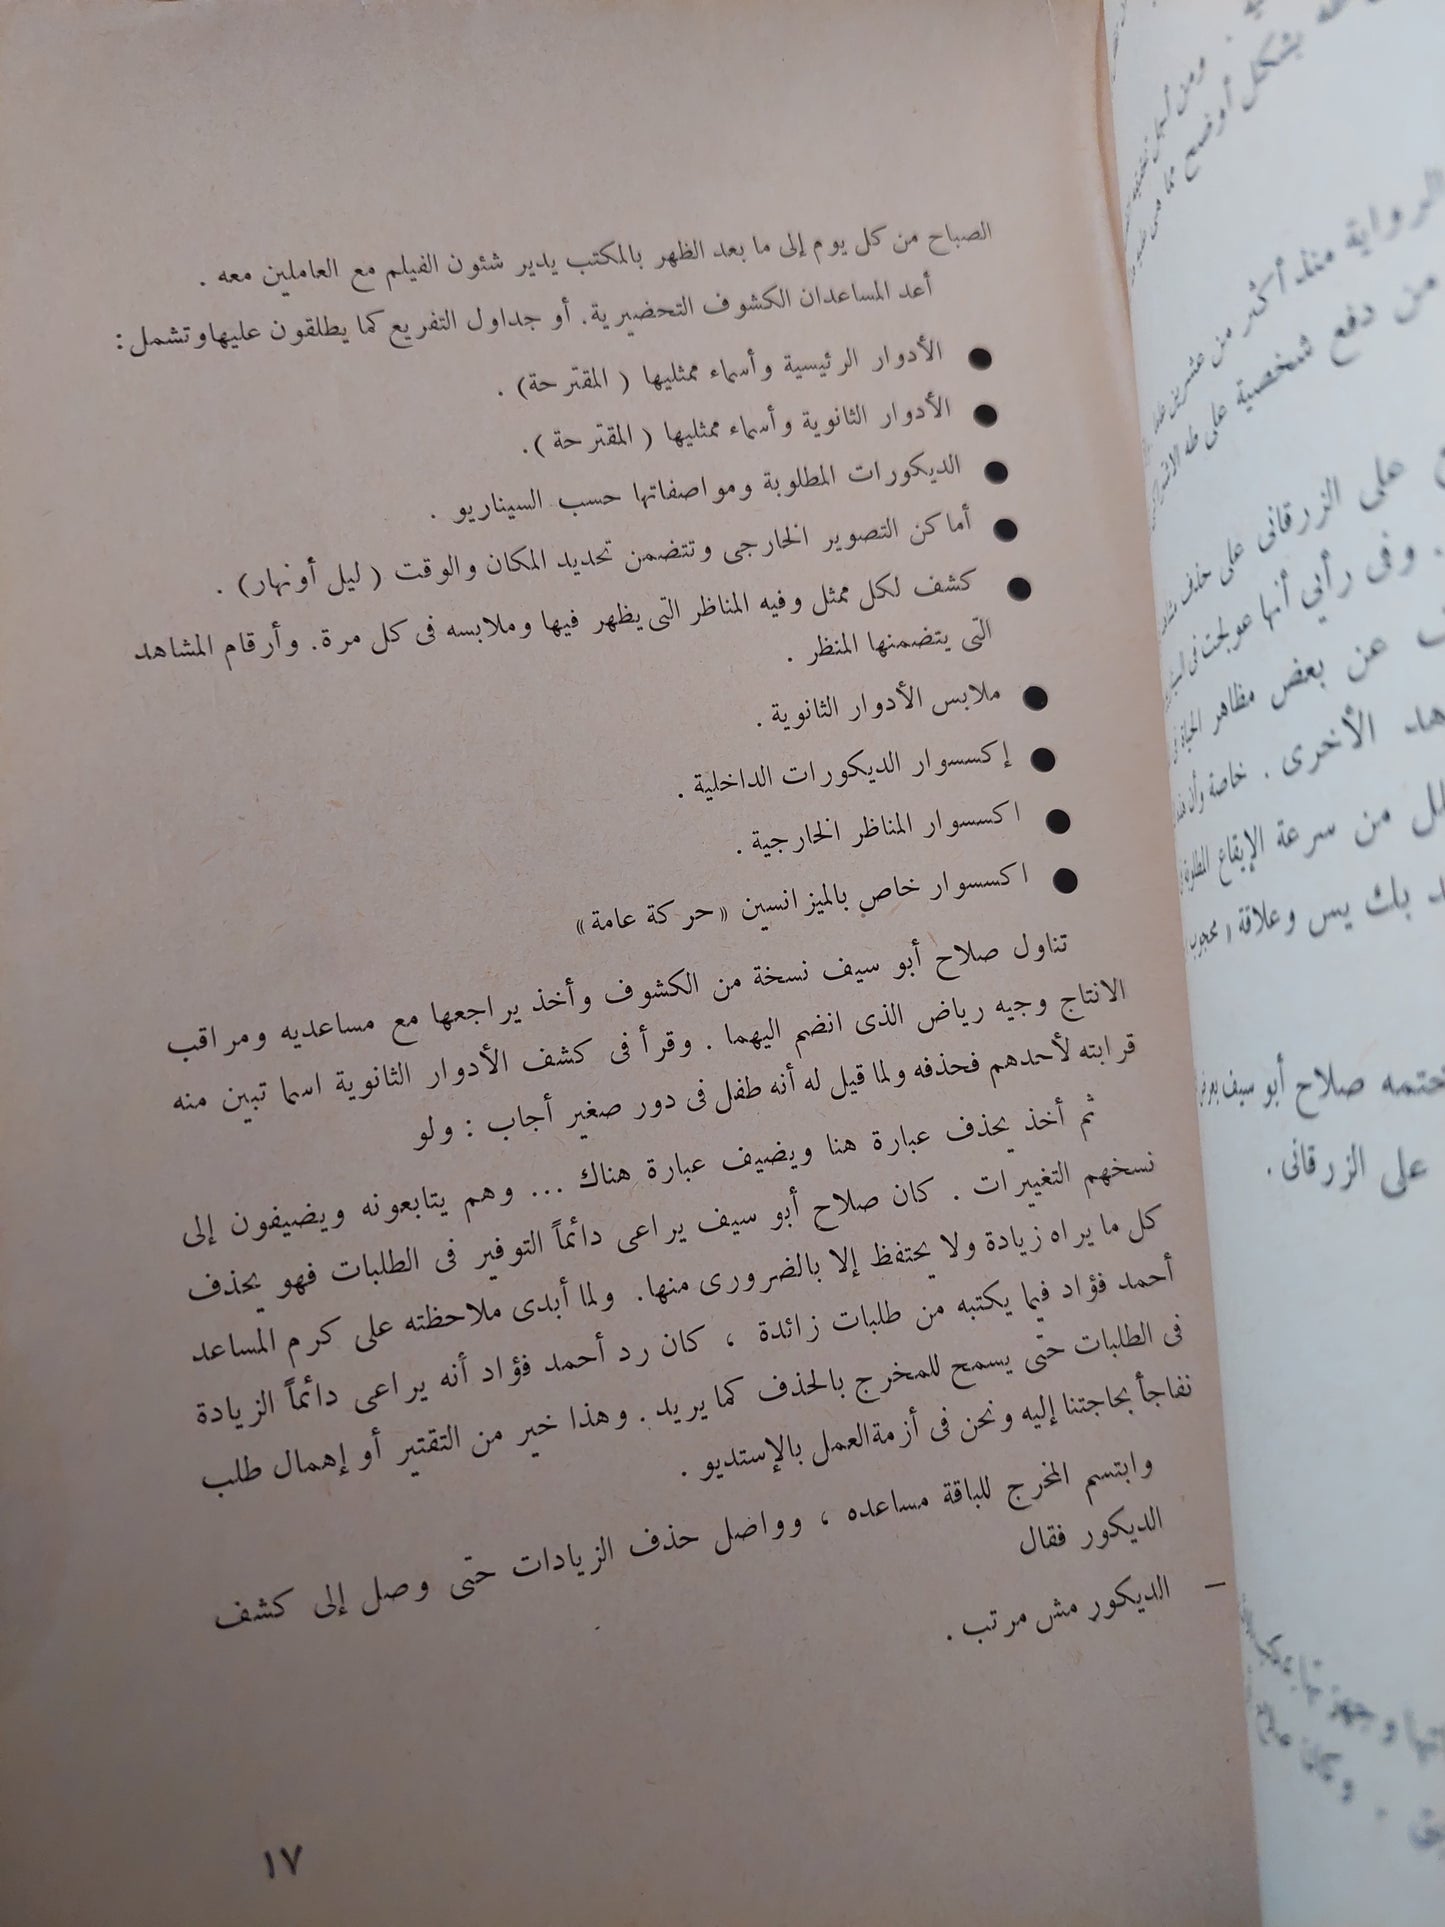 الصباح من كل يوم إلى ما بعد الظهر بالمكتب يدير شئون الفيلم مع العاملين معه .
أعد المساعدان الكشوف التحضيرية. أو جداول التفريع كما يطلقون عليها وتشمل :
● الأدوار الرئيسية وأسماء ممثليها ( المقترحة ) .
● الأدوار الثانوية وأسماء ممثليها ( المقترحة ).
● الديكورات المطلوبة ومواصفاتها حسب السيناريو .
● أماكن التصوير الخارجى وتتضمن تحديد المكان والوقت ( ليل أونهار) .
● كشف لكل ممثل وفيه المناظر التى يظهر فيها وملابسه فى كل مرة. وأرقام المشاهد
التى يتضمنها المنظر .
● ملابس الأدوار الثانوية .
● إكسسوار الديكورات الداخلية .
● اكسسوار المناظر الخارجية .
● اكسسوار خاص بالميزانسين «حركة عامة»
تناول صلاح أبو سيف نسخة من الكشوف وأخذ يراجعها مع مساعديه ومراقب
الانتاج وجيه رياض الذى انضم اليهما . وقرأ فى كشف الأدوار الثانوية اسما تبين منه
قرابته لأحدهم فحذفه ولما قيل له أنه طفل فى دور صغير أجاب : ولو
ثم أخذ يحذف عبارة هنا ويضيف عبارة هناك ... وهم يتابعونه ويضيفون إلى
نسخهم التغييرات . كان صلاح أبو سيف يراعى دائماً التوفير فى الطلبات فهو يحذف
كل ما يراه زيادة ولا يحتفظ إلا بالضرورى منها. ولما أبدى ملاحظته على كرم المساعد
أحمد فؤاد فيما يكتبه من طلبات زائدة ، كان رد أحمد فؤاد أنه يراعى دائماً الزيادة
فى الطلبات حتى يسمح للمخرج بالحذف كما يريد . وهذا خير من التقتير أو إهمال طلب
نفاجأ بحاجتنا إليه ونحن فى أزمة العمل بالإستديو .
وابتسم المخرج للباقة مساعده ، وواصل حذف الزيادات حتى وصل إلى كشف
الديكور فقال
– الديكور مش مرتب .
١٧
بشكل أوضح مما هى عليه
الرواية منذ أكثر من عشرين
من دفع شخصية على طه
على الزرقانى على حذف
. وفى رأيي أنها عولجت فى
عن بعض مظاهر الحياة
الأخرى . خاصة وأن
من سرعة الإيقاع المطلوبة
بك يس وعلاقة ( محجوب
صلاح أبو سيف
على الزرقانى .